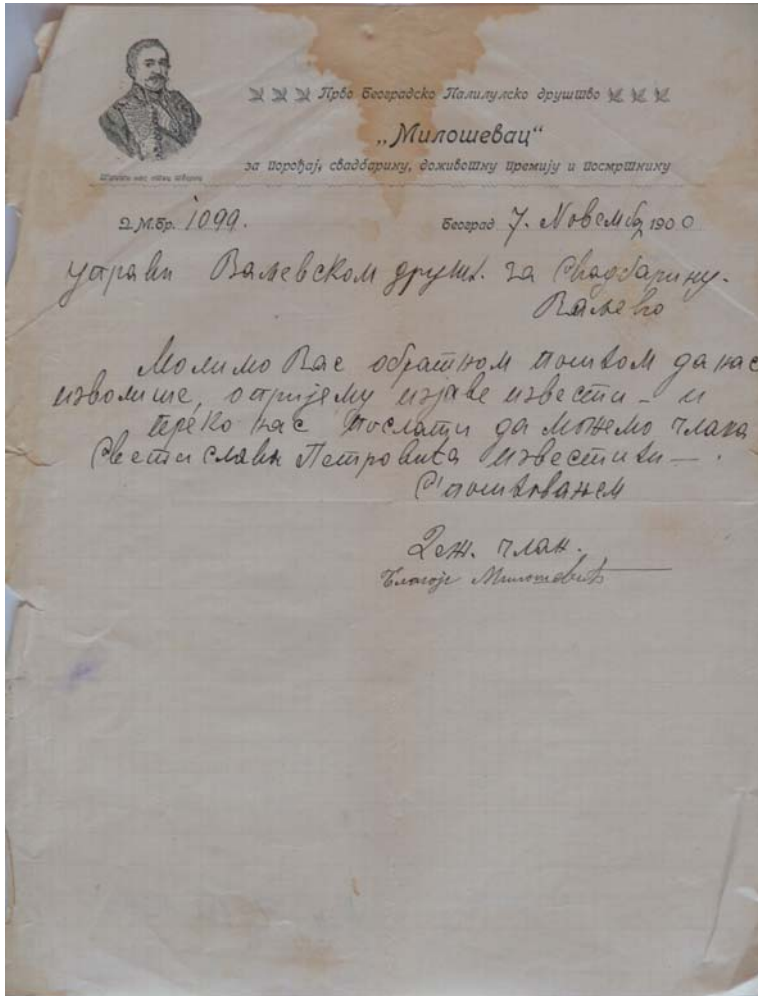 Прво Београдско Палилулско друштво
„Милошевац“
за порођај, свадбарину, доживотну премију и посмртнину
Д.М.Бр. 1099.
Београд 7. Новемб, 1900
Управи Ваљевском друшт. за Свадбарину.
Ваљево
Молимо Вас обратном поштом да нас
изволите, о пријему изјаве извести – и
преко нас послати да можемо члана
Светислава Петровића известити – .
С' поштовањем
Деж. члан.
Благоје Милошевић